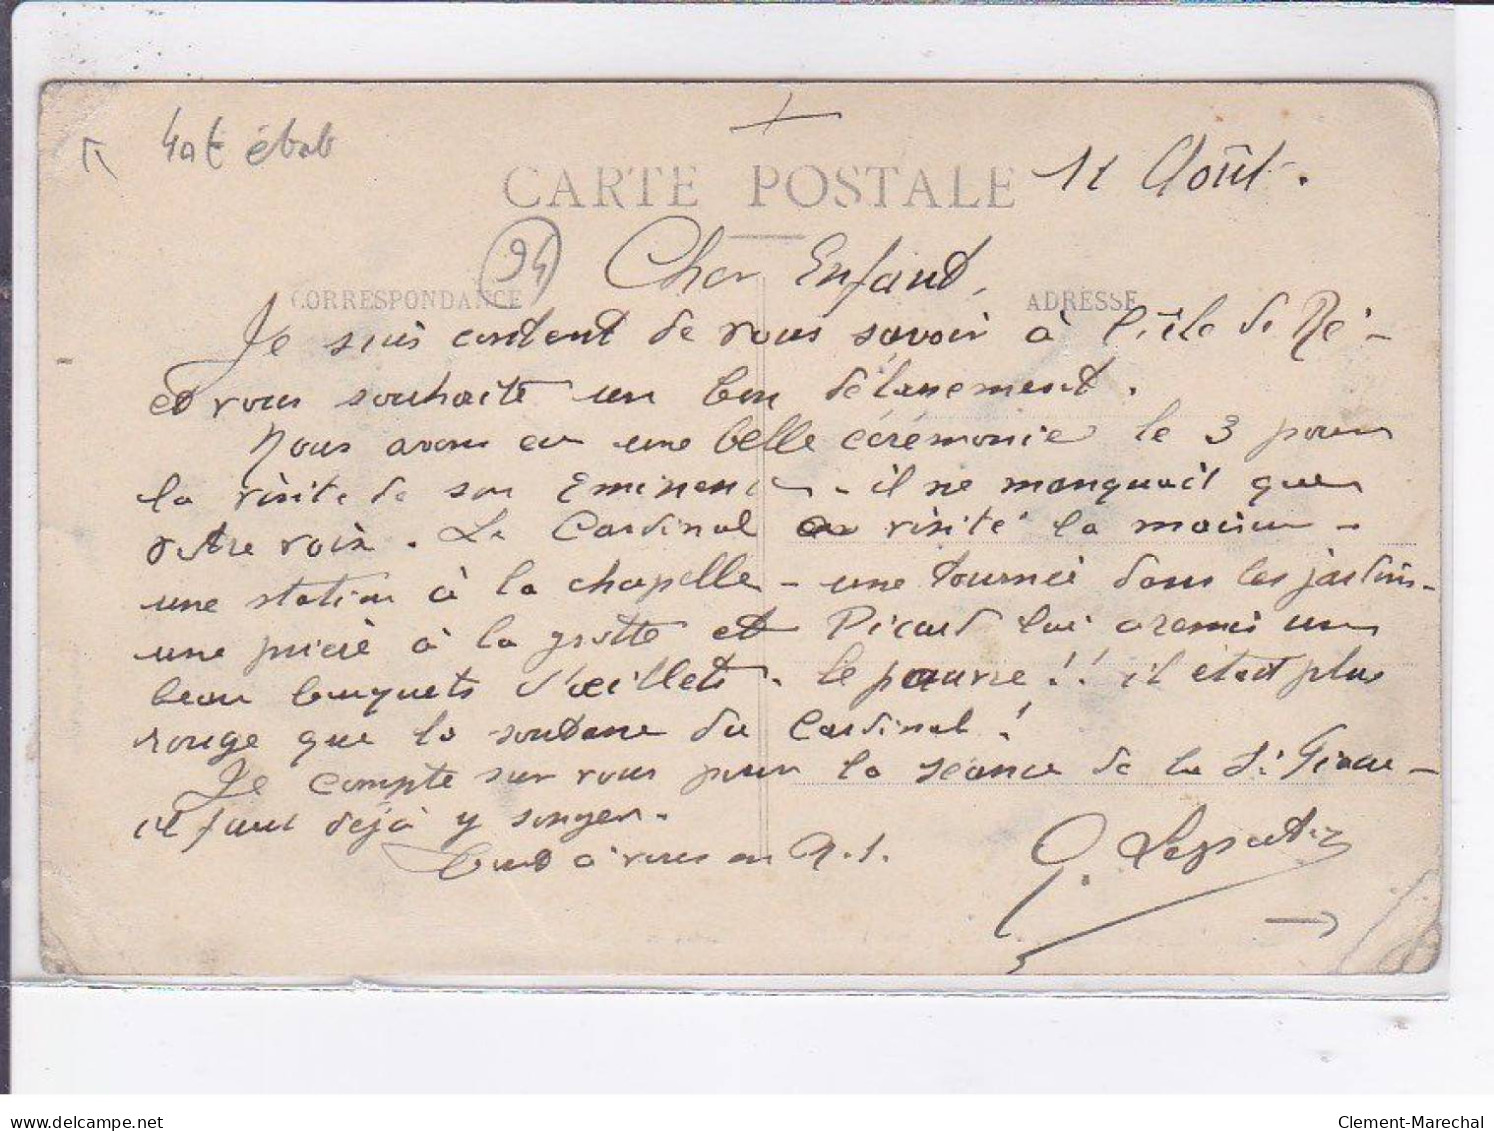 4at état
CARTE POSTALE
11 Août.
94
Cher Enfant,
CORRESPONDANCE
ADRESSE
Je suis content de vous savoir à l'île de Ré -
et vous souhaite un bon délassement.
Nous avons eu une belle cérémonie le 3 pour
la visite de son Eminence - il ne manquait que
votre voix. Le Cardinal a visité la maison -
une station à la chapelle - une tournée dans les jardins -
une prière à la grotte et Picard lui a remis un
beau bouquets d'œillets. le pauvre !! il était plus
rouge que la soutane du Cardinal !
Je compte sur vous pour la séance de la St -
il faut déjà y songer.
Tout à vous en N.S.
G.
delcampe.net
Clement-Marechal